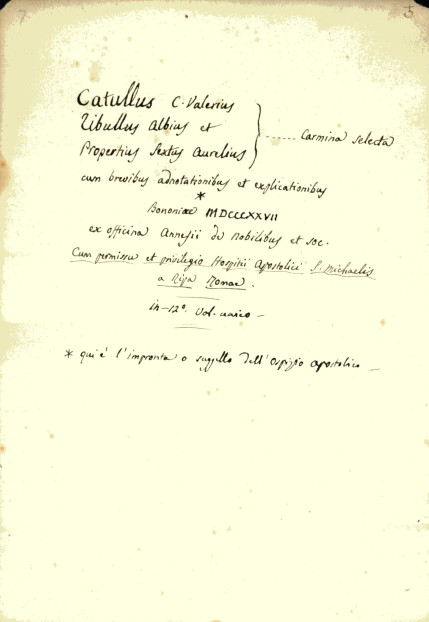 5
Catullus C. Valerius
Tibullus Albius et
Propertius Sextus Aurelius
Carmina selecta
cum brevibus adnotationibus et explicationibus
*
Bononiae MDCCCXXVII
ex officina Annesii de Nobilibus et soc.
Cum permissu et privilegio Hospitii Apostolici S. Michaelis
a Ripa Romae.
in-12º. Vol. unico -
* qui è l'impronta o suggello dell'Ospizio apostolico -